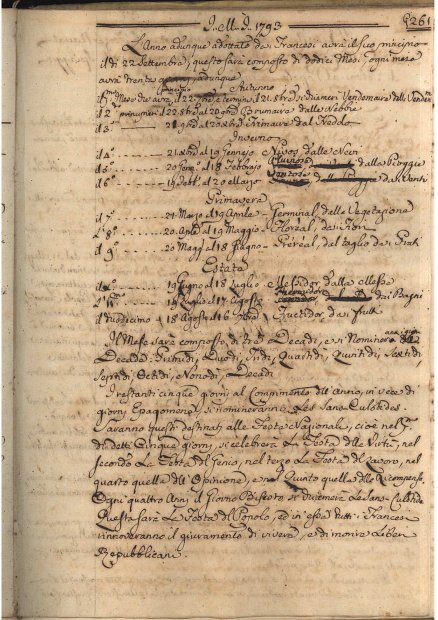 I. M. I. 1793
261
L'Anno adunque adottato da Francesi avrà il suo principio
il dì 22 Settembre, questo sarà composto di dodici Mesi, ogni mese
avrà trenta adunque
Autunno
il 1mo Mese
Brumaire dalle Nebbie
il 3° 21 9bre al 20 Xbre Frimaire dal Freddo
Inverno
il 4° 21 Xbre al 19 Gennajo Nivos dalle Nevi
il 5° 20 Genn° al 18 Febbrajo dalla Pioggia
il 6° 19 Febb° al 20 Marzo dai Venti
Primavera
il 7° 21 Marzo al 19 Aprile Germinal, dalle Vegetazione
L'8° 20 Aple al 19 Maggio Floréal, dai Fiori
il 9° 20 Magg° al 18 Giugno Préréal, dal taglio dai Prati
Estate
19 Giugno al 18 Luglio Messidor dalla Messe
19 Luglio al 17 Agosto dai Bagni
il duodecimo 18 Agosto al 16 Fructidor dai frutti
Il Mese sarà composto di tre Decadi, e si Nomineranno
Decade: Primidi, Duodi, Tridi, Quartidi, Quintidi, Sextidi,
Septidi, Octidi, Nonodi, Decadi
I restanti cinque giorni al Compimento dell'anno, in vece di
giorni Epagomene, si nomineranno Les Sans-Culotides.
Saranno questi destinati alle Feste Nazionali, cioè nel P.
di detti Cinque giorni si celebrerà La Festa della Virtù, nel
secondo La Festa del Genio, nel terzo La Festa del Lavoro, nel
quarto quella dell'Opinione, e nel Quinto quella della Ricompensa.
Ogni quattro Anni il Giorno Bisesto si diciamerà La Sans-Culotide
Questa sarà La Festa del Popolo, ed in essa tutti i Francesi
rinnoveranno il giuramento di vivere, e di morire Liberi
Repubblicani.